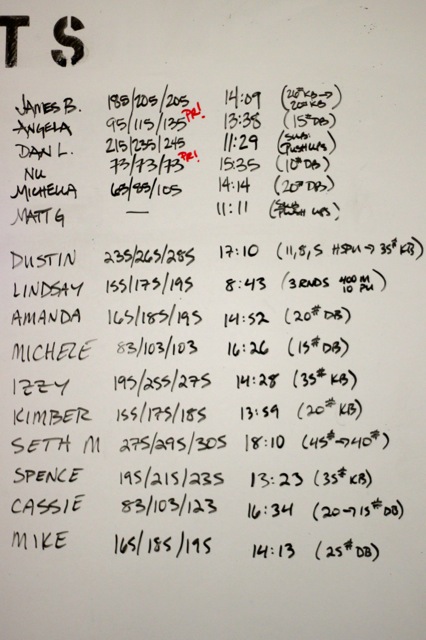 TS
JAMES B. 185/205/205 14:09 (26# KB → 20# KB)
ANGELA 95/115/135 PR! 13:38 (15# DB)
DAN L. 215/235/245 11:29 (SUB: PUSH UPS)
NU 73/73/73 PR! 15:35 (10# DB)
MICHELLA 63/83/105 14:14 (20# DB)
MATT G — 11:11 (SUB: PUSH UPS)
DUSTIN 235/265/285 17:10 (11, 8, 5 HSPU → 35# KB)
LINDSAY 155/175/195 8:43 (3 RNDS 400 M 10 PU)
AMANDA 165/185/195 14:52 (20# DB)
MICHELE 83/103/103 16:26 (15# DB)
IZZY 195/255/275 14:28 (35# KB)
KIMBER 155/175/185 13:59 (20# KB)
SETH M 275/295/305 18:10 (45# → 40#)
SPENCE 195/215/235 13:23 (35# KB)
CASSIE 83/103/123 16:34 (20 → 15# DB)
MIKE 165/185/195 14:13 (25# DB)